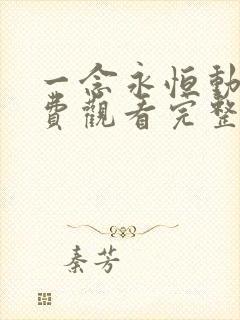 一念永恒動
費觀看完整
秦芳